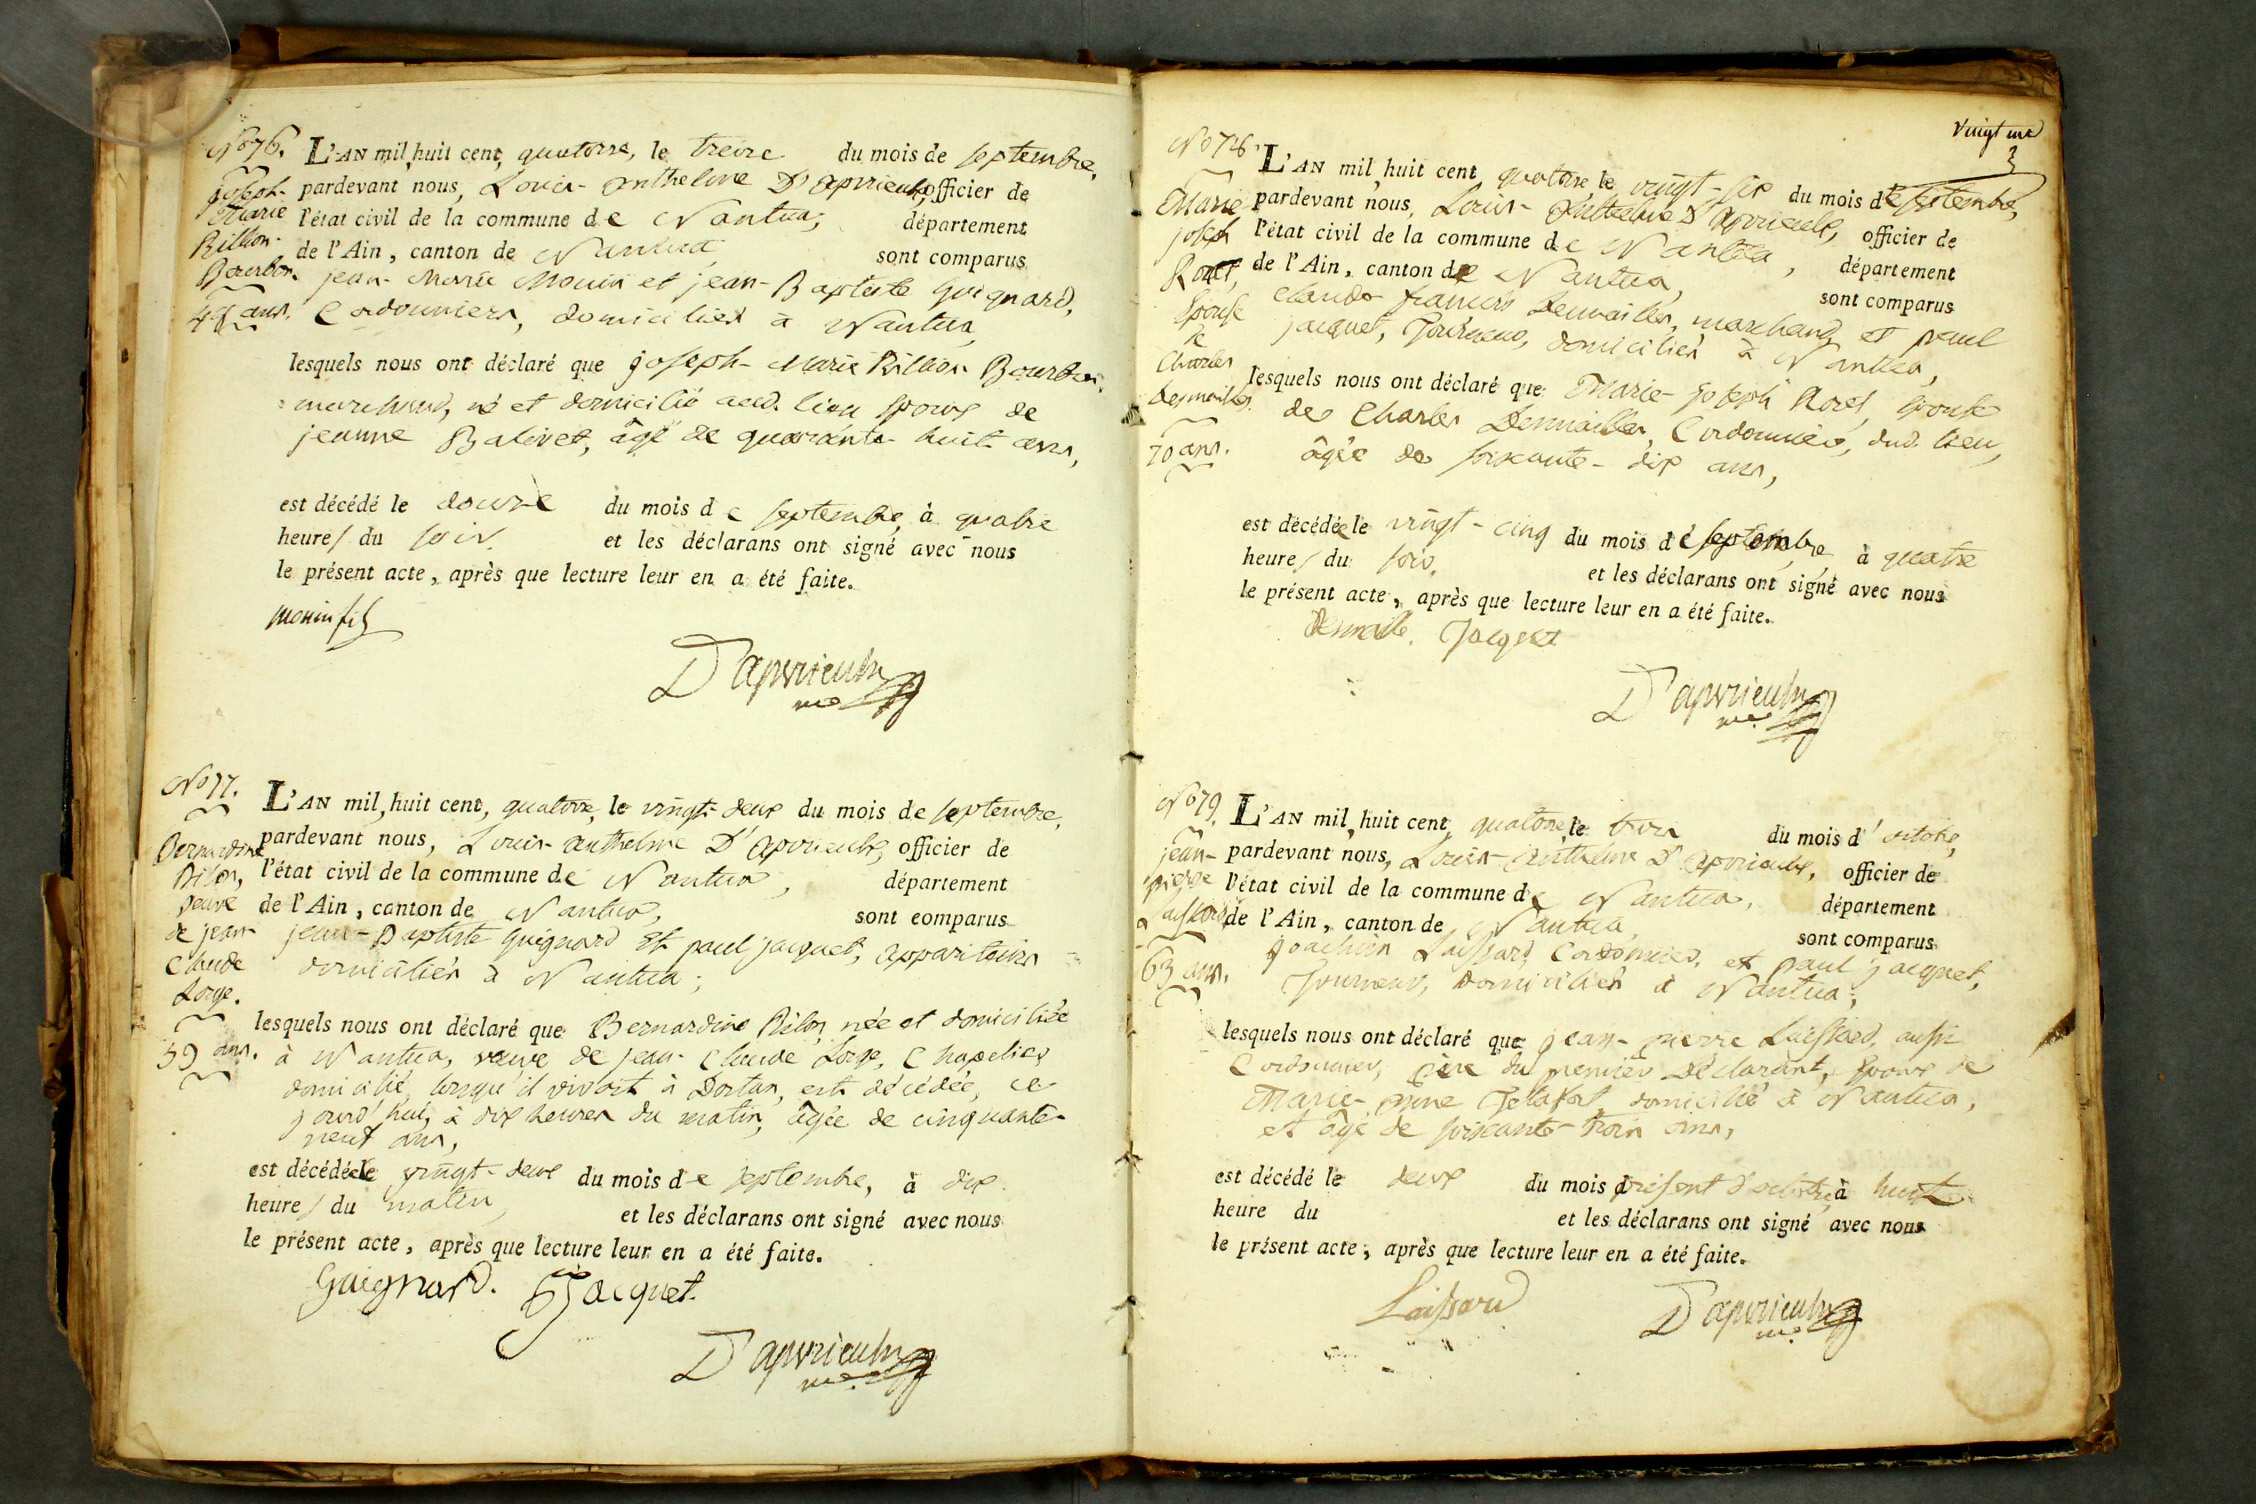 No 76.
Joseph-
Marie
Rillion-
Bourbon
48 ans.
L'AN mil huit cent quatorze, le treize du mois de septembre,
pardevant nous, Louis-Anthelme D'apvrieulx, officier de
l'état civil de la commune de Nantua, département
de l'Ain, canton de Nantua, sont comparus
jean-Marie Monin et jean-Baptiste Guignard,
Cordonniers, domiciliés à Nantua,
lesquels nous ont déclaré que joseph-Marie Rillion Bourbon,
marchand, né et domicilié aud. lieu époux de
jeanne Balivet, âgé de quarante-huit ans,
est décédé le douze du mois de septembre, à quatre
heures du soir, et les déclarans ont signé avec nous
le présent acte, après que lecture leur en a été faite.
monin fils
D'apvrieulx
me
No 77.
Bernardine
Rilon,
veuve
de jean-
Claude
Lorge.
59 ans.
L'AN mil huit cent quatorze, le vingt-deux du mois de septembre,
pardevant nous, Louis-anthelme D'apvrieulx, officier de
l'état civil de la commune de Nantua, département
de l'Ain, canton de Nantua, sont comparus
jean-Baptiste Guignard et paul jacquet, appariteurs
domiciliés à Nantua;
lesquels nous ont déclaré que Bernardine Rilon, née et domiciliée
à Nantua, veuve de jean-Claude Lorge, Chapelier
domicilié, lorsqu'il vivoit à Dortan, est décédée, ce
jourd'hui, à dix heures du matin, âgée de cinquante-
neuf ans,
est décédée le vingt-deux du mois de septembre, à dix
heures du matin, et les déclarans ont signé avec nous
le présent acte, après que lecture leur en a été faite.
Guignard. Jacquet.
D'apvrieulx
me.
vingt une
No 78.
Marie
joseph
Roret,
épouse
de
Charles
Desmailles.
70 ans.
L'AN mil huit cent quatorze le vingt-six du mois de septembre,
pardevant nous, Louis-Anthelme D'apvrieulx, officier de
l'état civil de la commune de Nantua, département
de l'Ain, canton de Nantua, sont comparus
claude françois Desmailles, marchand, et paul
jacquet, Journeur, domiciliés à Nantua,
lesquels nous ont déclaré que Marie-joseph Roret, épouse
de Charles Desmailles, Cordonnier, dud. lieu,
âgée de soixante-dix ans,
est décédée le vingt-cinq du mois de septembre, à quatre
heures du soir, et les déclarans ont signé avec nous
le présent acte, après que lecture leur en a été faite.
Desmaille. Jacquet
D'apvrieulx
me.
No 79.
jean-
pierre
Laissard
63 ans.
L'AN mil huit cent quatorze le trois du mois d'octobre,
pardevant nous, Louis-Anthelme D'apvrieulx, officier de
l'état civil de la commune de Nantua, département
de l'Ain, canton de Nantua, sont comparus
joachim Laissard, Cordonnier, et paul jacquet,
Journeur, domiciliés à Nantua;
lesquels nous ont déclaré que jean-pierre Laissard, aussi
Cordonnier, père du premier Déclarant, époux de
Marie-domicilié à Nantua,
et âgé de soixante-trois ans,
est décédé le deux du mois présent d'octobre, à huit
heure du et les déclarans ont signé avec nous
le présent acte, après que lecture leur en a été faite.
Laissard
D'apvrieulx
me.